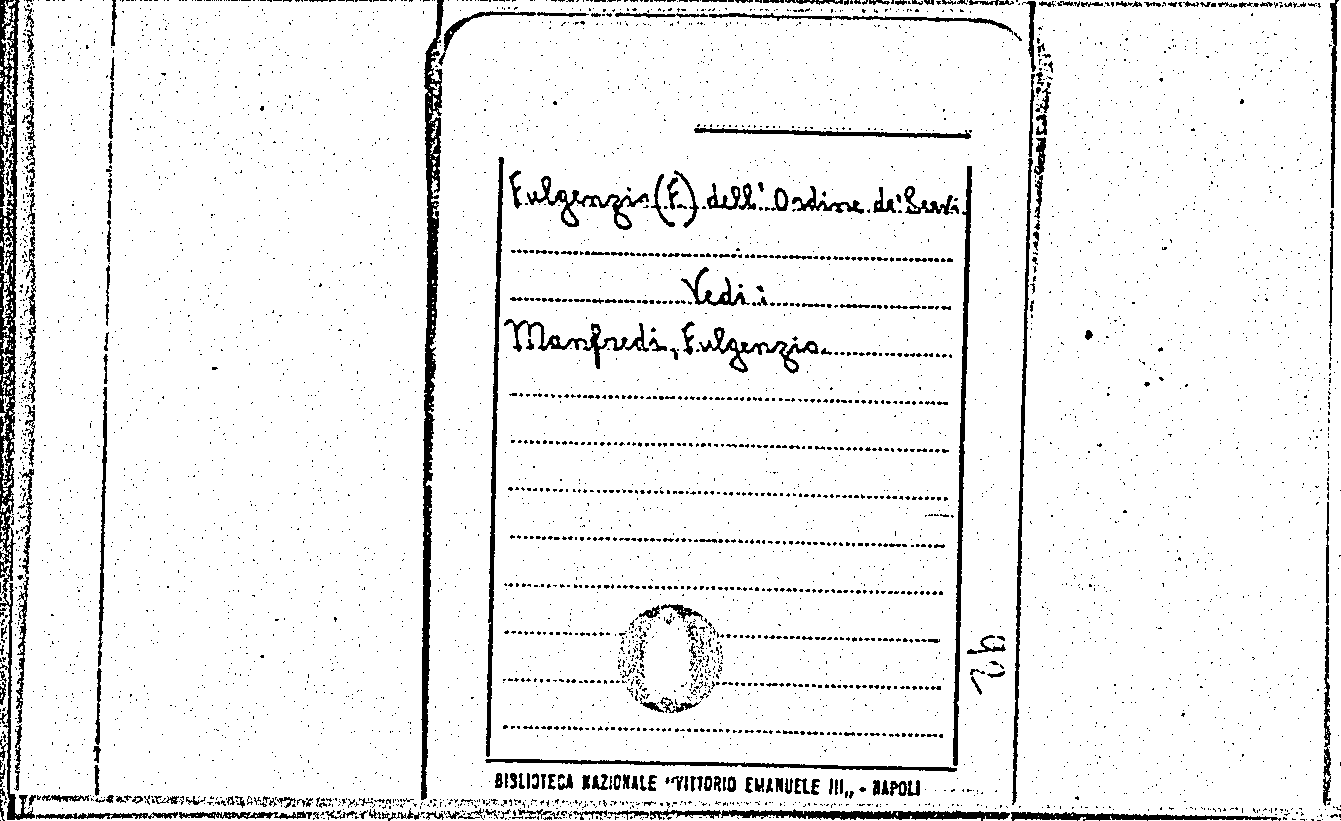 Fulgenzio (F.) dell' Ordine de' Servi.
Vedi:
Manfredi, Fulgenzio.
92
BIBLIOTECA NAZIONALE "VITTORIO EMANUELE III„ - NAPOLI